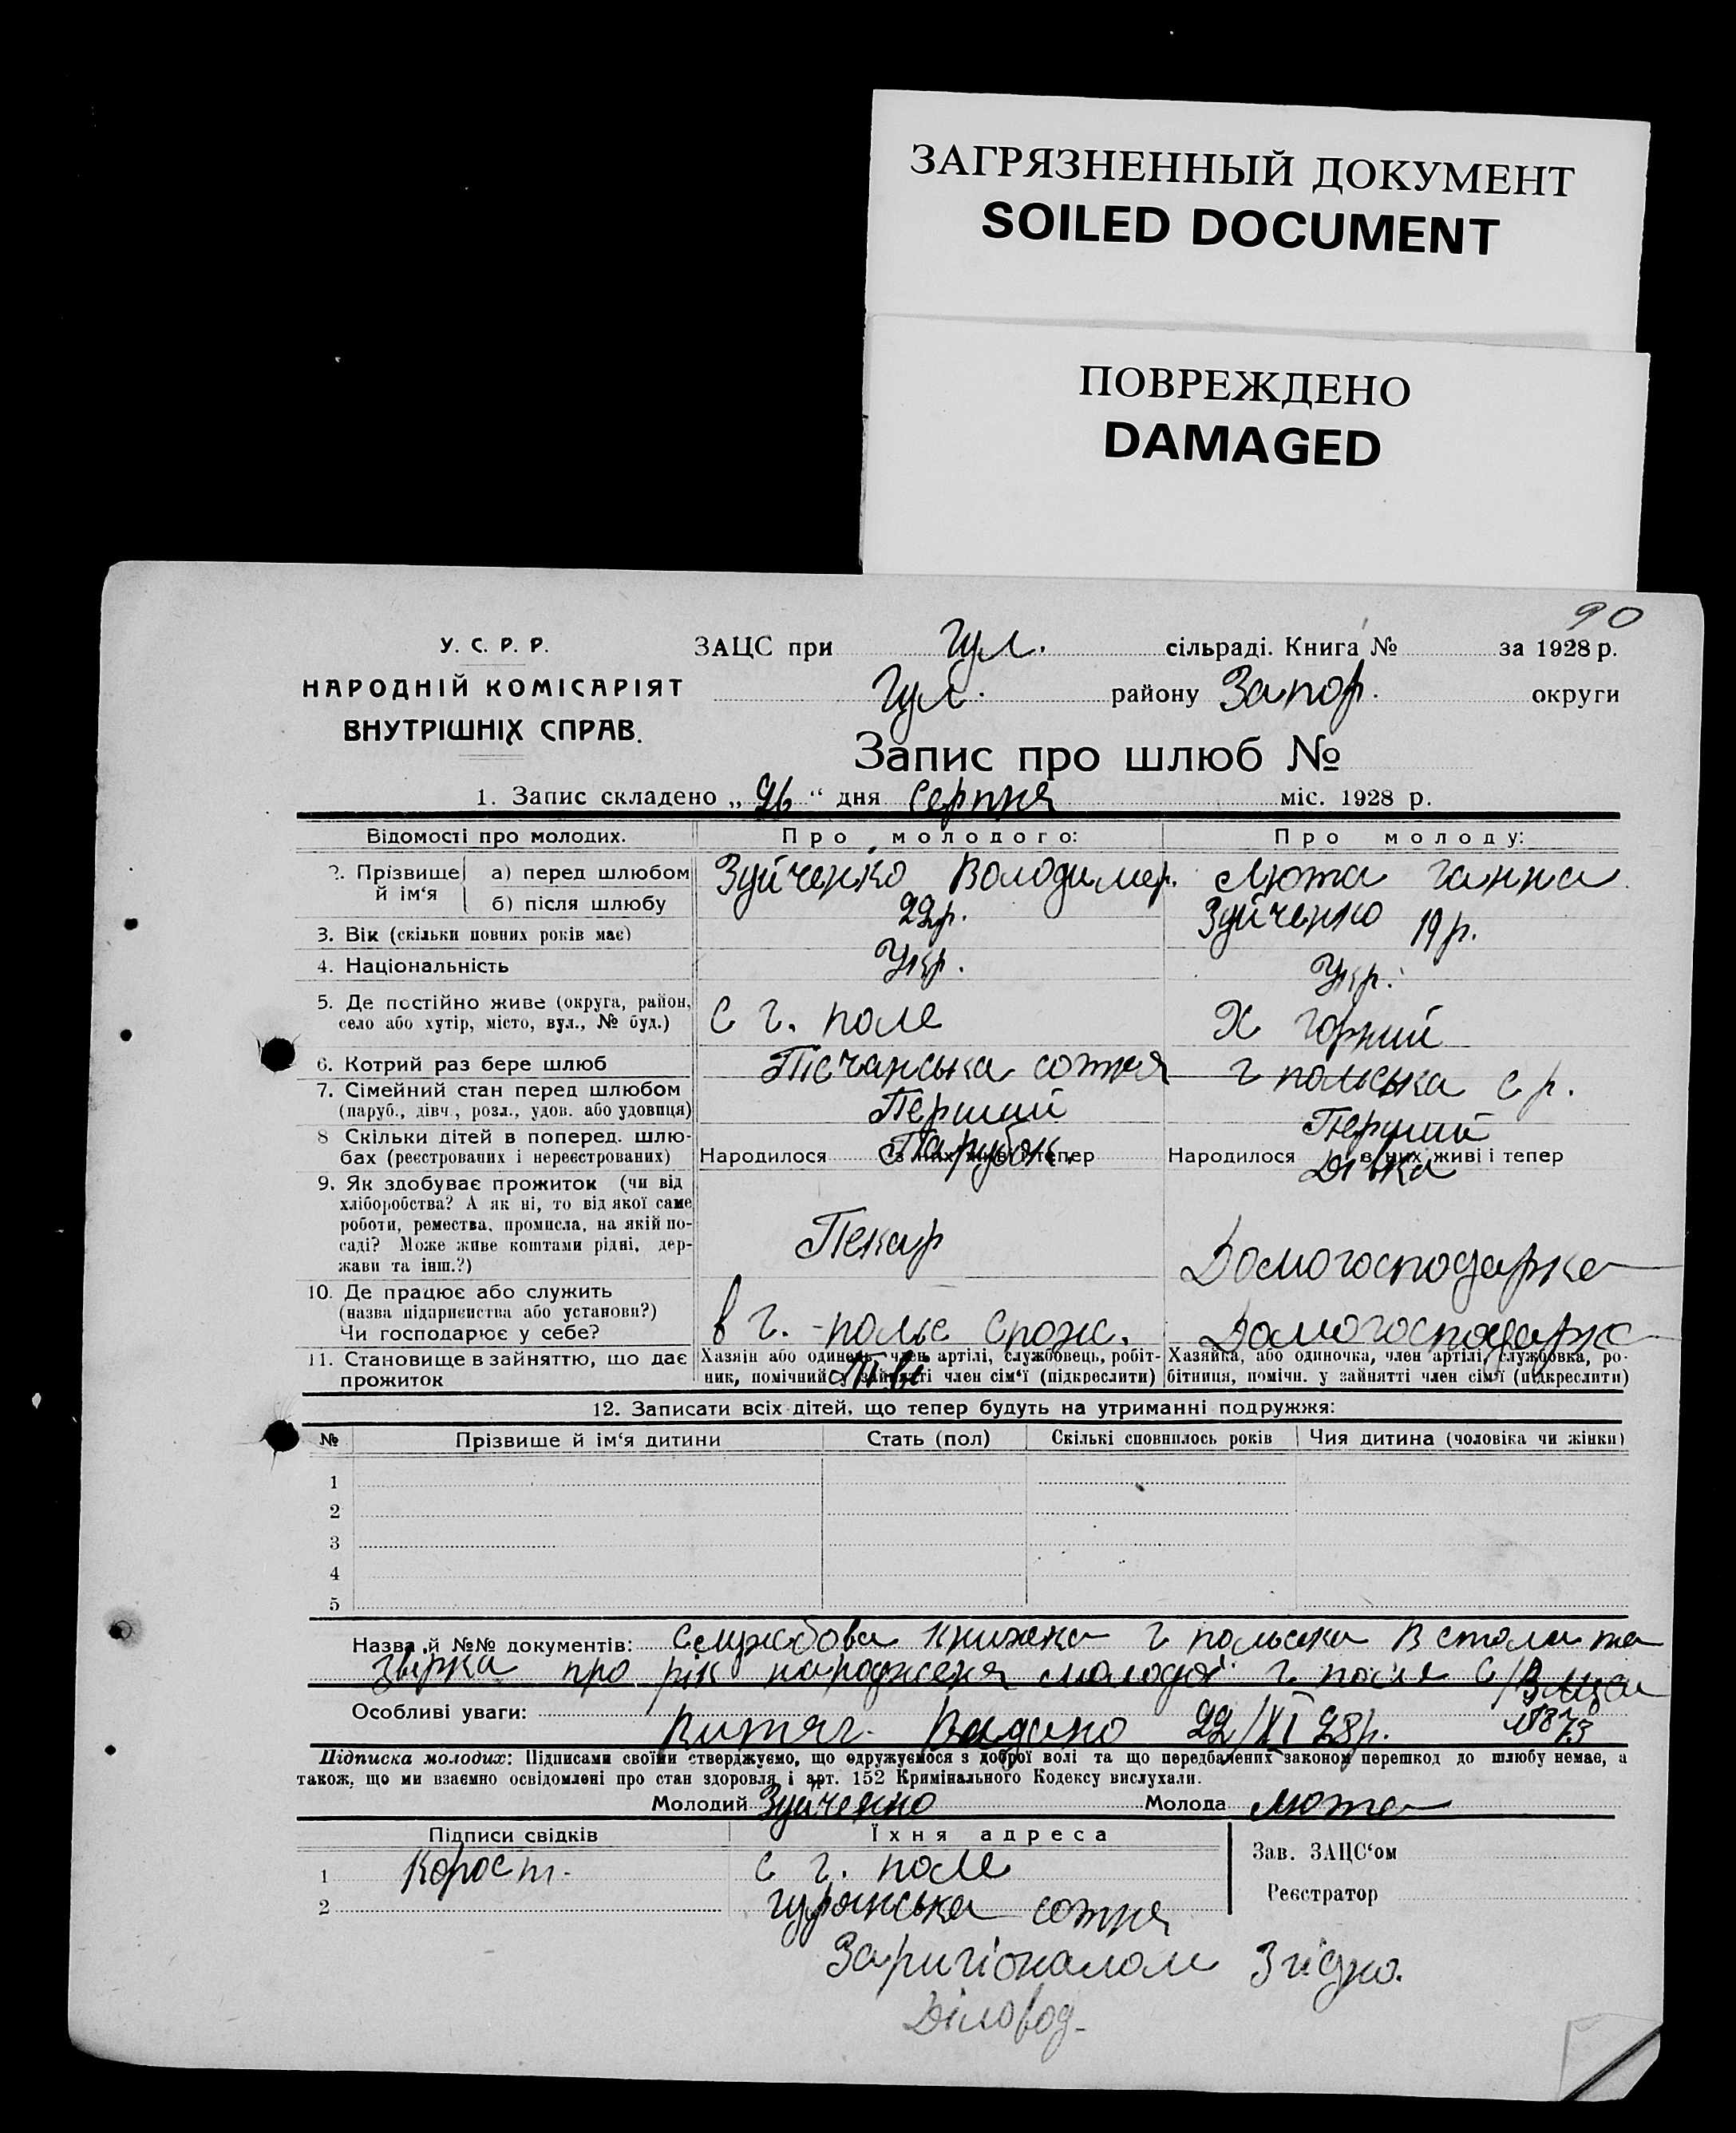 ЗАГРЯЗНЕННЫЙ ДОКУМЕНТ
SOILED DOCUMENT
ПОВРЕЖДЕНО
DAMAGED
90
У. С. Р. Р.
НАРОДНІЙ КОМІСАРІЯТ
ВНУТРІШНІХ СПРАВ.
ЗАЦС при Гул. сільраді. Книга № за 1928 р.
Гул. району Запор. округи
Запис про шлюб №
1. Запис складено „ 26 “ дня серпня міс. 1928 р.
Відомості про молодих. Про молодого: Про молоду:
2. Прізвище й ім‘я а) перед шлюбом Зуйченко Володимер. Люта Ганна
б) після шлюбу Зуйченко
3. Вік (скільки повних років має) 22р. 19р.
4. Національність Укр. Укр.
5. Де постійно живе (округа, район, село або хутір, місто, вул., № буд.) с Г. поле Х Горкий
Пісчанська сотня Г польська с р.
6. Котрий раз бере шлюб Перший Перший
7. Сімейний стан перед шлюбом (паруб., дівч., розл., удов. або удовиця) Парубок Дівка
8 Скільки дітей в поперед. шлюбах (реєстрованих і нереєстрованих) Народилося з них живі і тепер Народилося з них живі і тепер
9. Як здобуває прожиток (чи від хліборобства? А як ні, то від якої саме роботи, ремества, промисла, на якій посаді? Може живе коштами рідні, держави та інш.?) Пекар Домогосподарка
10. Де працює або служить (назва підприємства або установи?) Чи господарює у себе? в Г.-польс Спож. Домогосподарк
11. Становище в зайняттю, що дає прожиток
Хазяін або одинець, член артілі, службовець, робітник, помічний у зайнятті член сім‘ї (підкреслити)
Хазяйка, або одиночка, член артілі, службовка, робітниця, помічн. у зайнятті член сім‘ї (підкреслити)
12. Записати всіх дітей, що тепер будуть на утриманні подружжя:
№ Прізвище й ім‘я дитини Стать (пол) Скількі сповнилось років Чия дитина (чоловіка чи жінки)
1
2
3
4
5
Назва й №№ документів: Службова книжка Г польська В стола та
звірка про рік народженя молодої Г. поле с/р
Особливі уваги: Витяг Видано 22/XI 28р. №873
Підписка молодих: Підписами своїми стверджуємо, що одружуємося з доброї волі та що передбалених законом перешкод до шлюбу немає, а
також, що ми взаємно освідомлені про стан здоровля і арт. 152 Кримінального Кодексу вислухали.
Молодий Зуйченко Молода Люта
Підписи свідків Їхня адреса Зав. ЗАЦС‘ом
1 Корост. с Г. поле
Реєстратор
2 гурянська сотня
Заригіоналом Згідно.
Діловод-